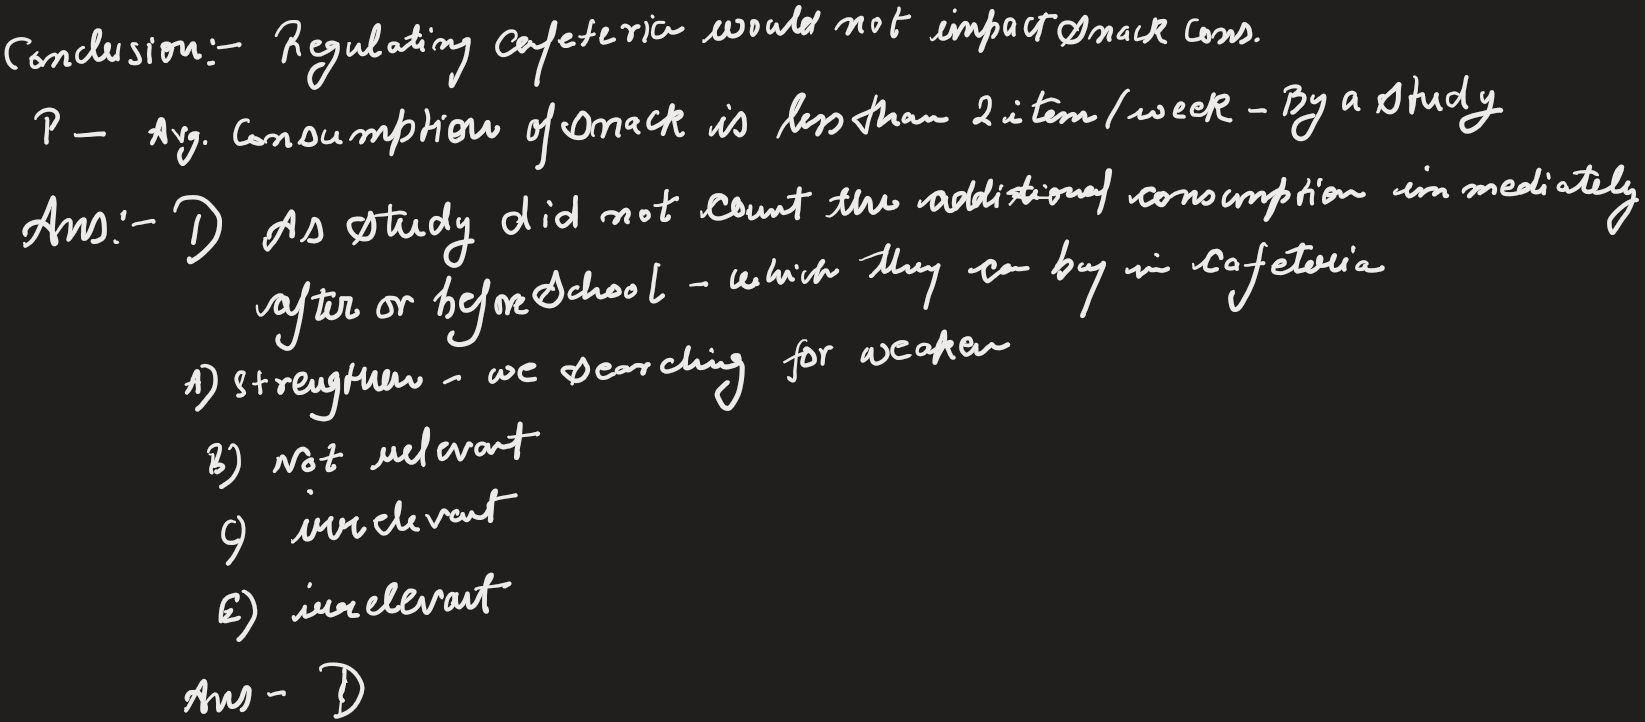 Conclusion:- Regulating cafeteria would not impact snack cons.
P - Avg. Consumption of snack is less than 2 item/week - By a study
Ans:- D As study did not count the additional consumption immediately
after or before school - which they can buy in cafeteria
A) Strengthen - we searching for weaken
B) Not relevant
C) irrelevant
E) irrelevant
Ans - D